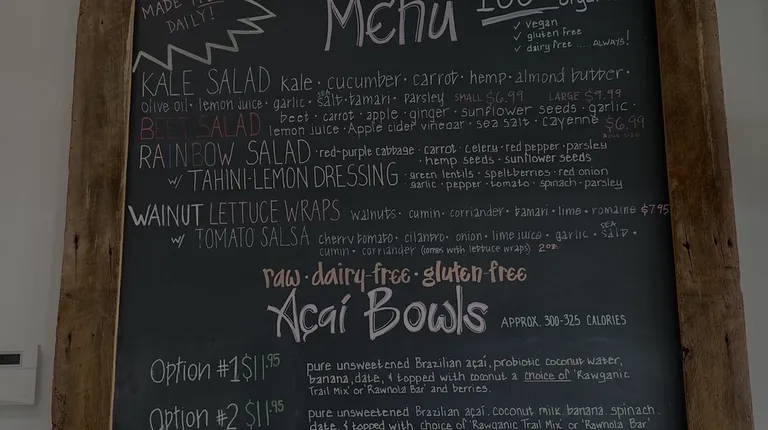 MADE
DAILY!
Menu
100
✓ vegan
✓ gluten free
✓ dairy free ..... ALWAYS!
KALE SALAD kale · cucumber · carrot · hemp · almond butter ·
olive oil · lemon juice · garlic · SEA salt · tamari · parsley SMALL $6.99 LARGE $9.99
BEET SALAD beet · carrot · apple · ginger · sunflower seeds · garlic ·
lemon juice · Apple cider vinegar · sea salt · cayenne $6.99
RAINBOW SALAD · red-purple cabbage · carrot · celery · red pepper · parsley
hemp seeds · sunflower seeds
w/ TAHINI-LEMON DRESSING · green lentils · spelt berries · red onion
garlic · pepper · tomato · spinach · parsley
WALNUT LETTUCE WRAPS walnuts · cumin · corriander · tamari · lime · romaine $7.95
w/ TOMATO SALSA cherry tomato · cilantro · onion · lime juice · garlic · SEA salt ·
cumin · corriander (comes with lettuce wraps) 2oz.
raw · dairy-free · gluten-free
Açaí Bowls APPROX. 300-325 CALORIES
Option #1 $11.95 pure unsweetened Brazilian açaí, probiotic coconut water,
banana, date, & topped with coconut & choice of 'Rawganic
Trail Mix' or 'Rawnola Bar' and berries.
Option #2 $11.95 pure unsweetened Brazilian açaí, coconut milk, banana, spinach,
date, & topped with choice of 'Rawganic Trail Mix' or 'Rawnola Bar'